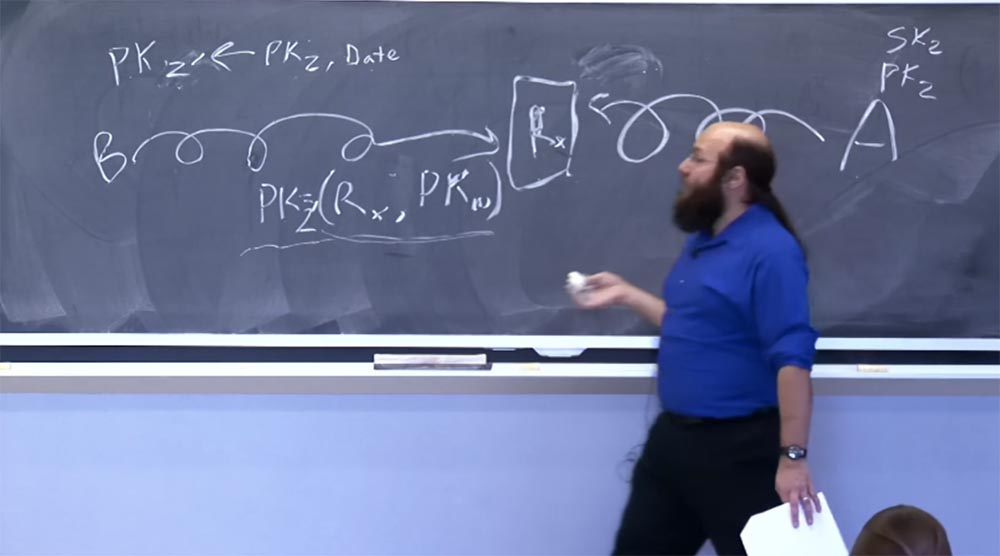 PK_z' ← PK_z, Date
SK_z
PK_z
B
R_x
A
PK_z(R_x,